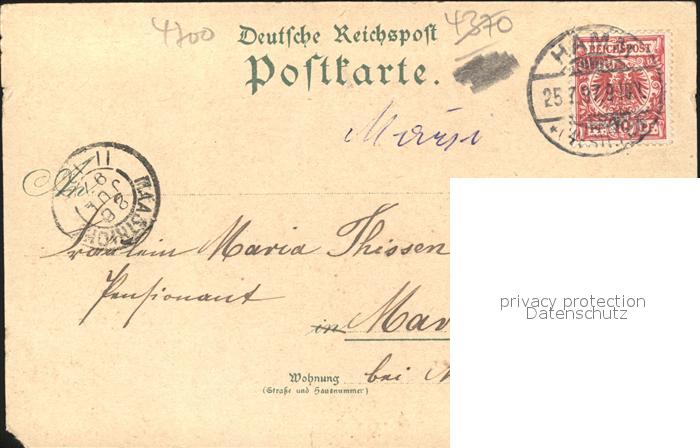 4700
4370
Deutsche Reichspost
Postkarte.
HAM
REICHSPOST
25.7.97.9
An
MAASTRICH
26 JUL 97
Fräulein Maria Thissen
Pensionant
in Mar
bei
Wohnung
(Straße und Hausnummer)
privacy protection
Datenschutz